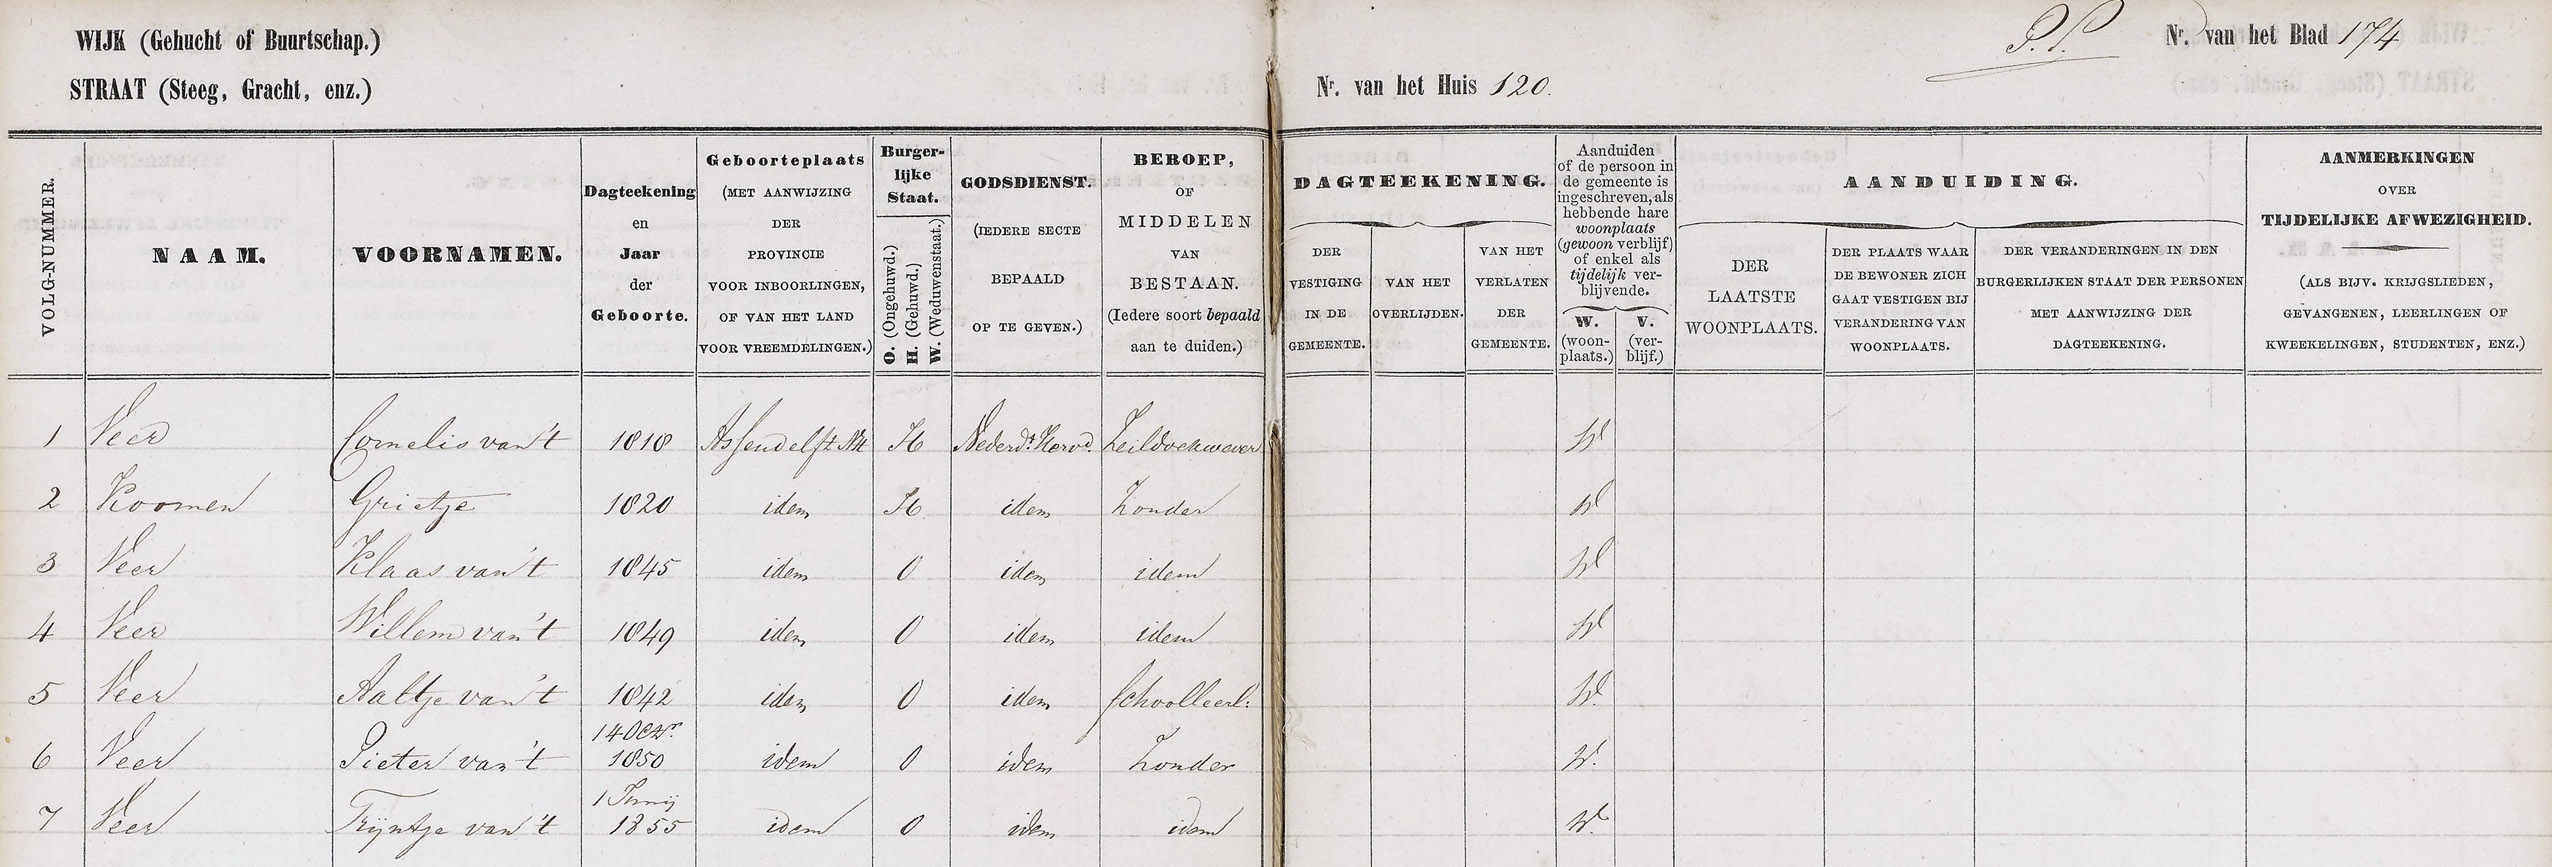 WIJK (Gehucht of Buurtschap.)
STRAAT (Steeg, Gracht, enz.)
Nr. van het Huis 120.
P.P.
Nr. van het Blad 174
VOLG-NUMMER.
NAAM.
VOORNAMEN.
Dagteekening
en
Jaar
der
Geboorte.
Geboorteplaats
(MET AANWIJZING
DER
PROVINCIE
VOOR INBOORLINGEN,
OF VAN HET LAND
VOOR VREEMDELINGEN.)
Burger-
lijke
Staat.
O. (Ongehuwd.)
H. (Gehuwd.)
W. (Weduwenstaat.)
GODSDIENST.
(IEDERE SECTE
BEPAALD
OP TE GEVEN.)
BEROEP,
OF
MIDDELEN
VAN
BESTAAN.
(Iedere soort bepaald
aan te duiden.)
DAGTEEKENING.
DER
VESTIGING
IN DE
GEMEENTE.
VAN HET
OVERLIJDEN.
VAN HET
VERLATEN
DER
GEMEENTE.
Aanduiden
of de persoon in
de gemeente is
ingeschreven, als
hebbende hare
woonplaats
(gewoon verblijf)
of enkel als
tijdelijk ver-
blijvende.
W.
(woon-
plaats.)
V.
(ver-
blijf.)
AANDUIDING.
DER
LAATSTE
WOONPLAATS.
DER PLAATS WAAR
DE BEWONER ZICH
GAAT VESTIGEN BIJ
VERANDERING VAN
WOONPLAATS.
DER VERANDERINGEN IN DEN
BURGERLIJKEN STAAT DER PERSONEN
MET AANWIJZING DER
DAGTEEKENING.
AANMERKINGEN
OVER
TIJDELIJKE AFWEZIGHEID.
(ALS BIJV. KRIJGSLIEDEN,
GEVANGENEN, LEERLINGEN OF
KWEEKELINGEN, STUDENTEN, ENZ.)
1 Veer Cornelis van 't 1818 Assendelft NH H Nederd. Herv. Zeildoekwever W
2 Koomen Grietje 1820 idem H idem Zonder W
3 Veer Klaas van 't 1845 idem O idem idem W
4 Veer Willem van 't 1849 idem O idem idem W
5 Veer Aaltje van 't 1842 idem O idem schoolleerl: W.
6 Veer Pieter van 't 14 Decr. 1850 idem O idem Zonder W.
7 Veer Trijntje van 't 1 Junij 1855 idem O idem idem W.